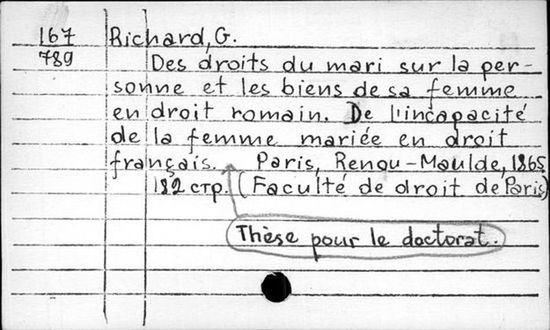 167 Richard, G.
789 Des droits du mari sur la per-
sonne et les biens de sa femme
en droit romain. De l'incapacité
de la femme mariée en droit
français. Paris, Renou-Maulde, 1865
182 стр. (Faculté de droit de Paris)
Thèse pour le doctorat.